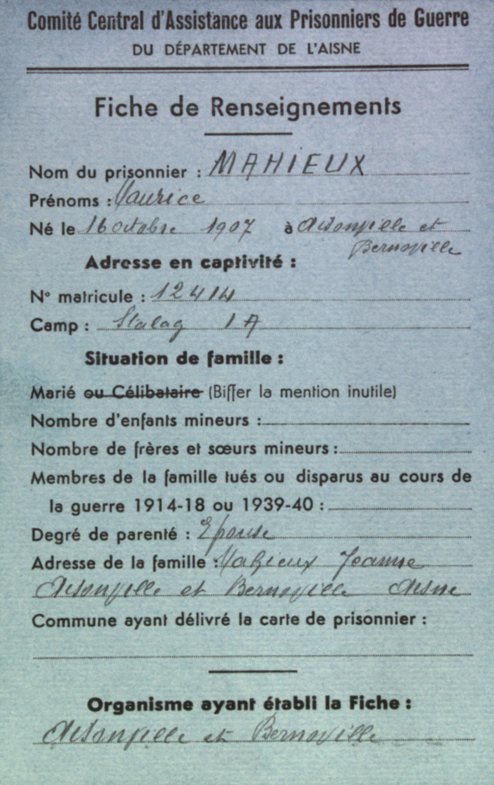 Comité Central d'Assistance aux Prisonniers de Guerre
DU DÉPARTEMENT DE L'AISNE
Fiche de Renseignements
Nom du prisonnier : MAHIEUX
Prénoms : Maurice
Né le 16 octobre 1907 à Aisonville et
Bernoville
Adresse en captivité :
N° matricule : 12414
Camp : Stalag IA
Situation de famille :
Marié ou Célibataire (Biffer la mention inutile)
Nombre d'enfants mineurs :
Nombre de frères et sœurs mineurs :
Membres de la famille tués ou disparus au cours de
la guerre 1914-18 ou 1939-40 :
Degré de parenté : Epouse
Adresse de la famille : Mahieux Jeanne
Aisonville et Bernoville Aisne
Commune ayant délivré la carte de prisonnier :
Organisme ayant établi la Fiche :
Aisonville et Bernoville